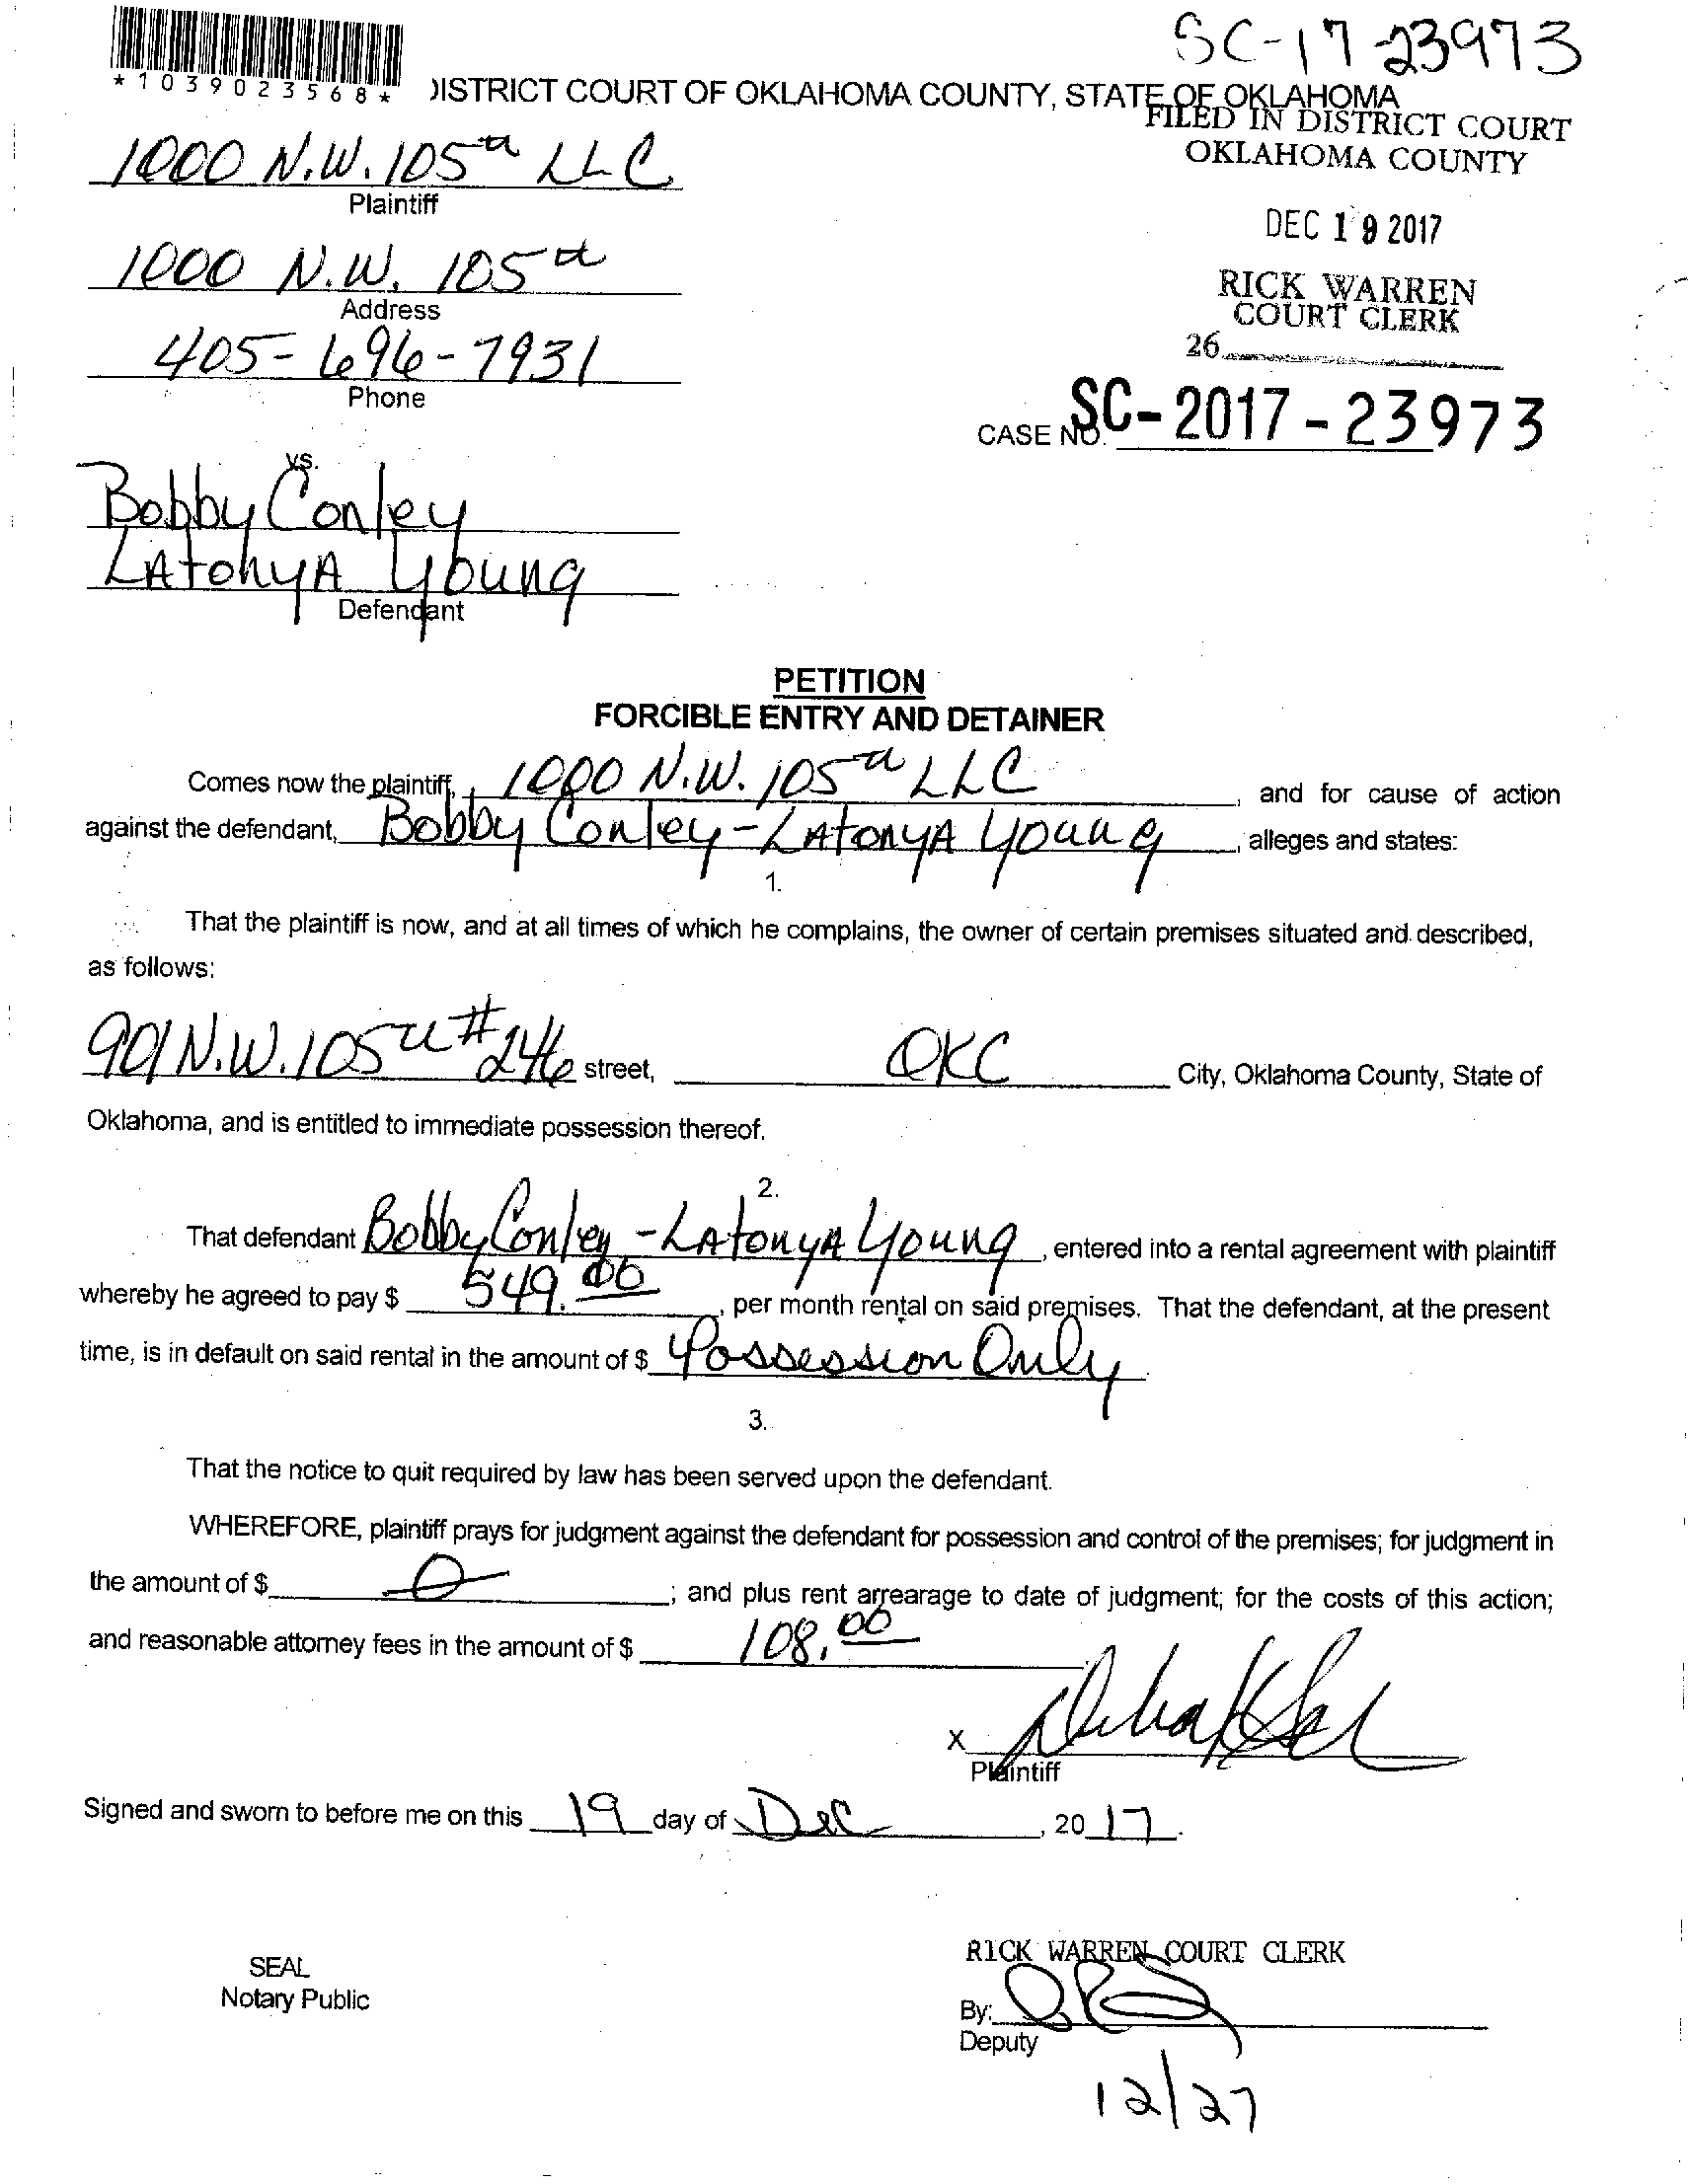 SC-17-23973
*1039023568*
DISTRICT COURT OF OKLAHOMA COUNTY, STATE OF OKLAHOMA
FILED IN DISTRICT COURT
OKLAHOMA COUNTY
1000 N.W. 105th LLC
Plaintiff
DEC 19 2017
1000 N.W. 105th
Address
RICK WARREN
COURT CLERK
405-696-7931
Phone
26
CASE NO. SC-2017-23973
vs.
Bobby Conley
LAtonyA Young
Defendant
PETITION
FORCIBLE ENTRY AND DETAINER
Comes now the plaintiff, 1000 N.W. 105th LLC, and for cause of action
against the defendant, Bobby Conley-LAtonyA Young, alleges and states:
1.
That the plaintiff is now, and at all times of which he complains, the owner of certain premises situated and described,
as follows:
901 N.W. 105th #246 street, OKC City, Oklahoma County, State of
Oklahoma, and is entitled to immediate possession thereof.
2.
That defendant Bobby Conley-LAtonyA Young, entered into a rental agreement with plaintiff
whereby he agreed to pay $ 549.00, per month rental on said premises. That the defendant, at the present
time, is in default on said rental in the amount of $ Possession Only
3.
That the notice to quit required by law has been served upon the defendant.
WHEREFORE, plaintiff prays for judgment against the defendant for possession and control of the premises; for judgment in
the amount of $ 0; and plus rent arrearage to date of judgment; for the costs of this action;
and reasonable attorney fees in the amount of $ 108.00
X
Plaintiff
Signed and sworn to before me on this 19 day of Dec, 2017.
RICK WARREN COURT CLERK
SEAL
Notary Public
By:
Deputy
12/27